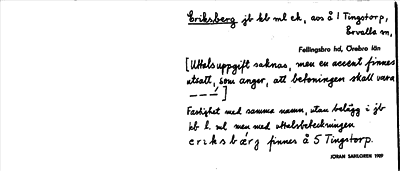 Eriksberg jb kb ml ek, aos å 1 Tingstorp,
Ervalla sn,
Fellingsbro hd, Örebro län
[Uttalsuppgift saknas, men en accent finnes
utsatt, som anger, att betoningen skall vara
– – –́ – ]
Fastighet med samma namn, utan belägg i jb
kb l. ml men med uttalsbeteckningen
eriksbærg finnes å 5 Tingstorp.
JÖRAN SAHLGREN 1909